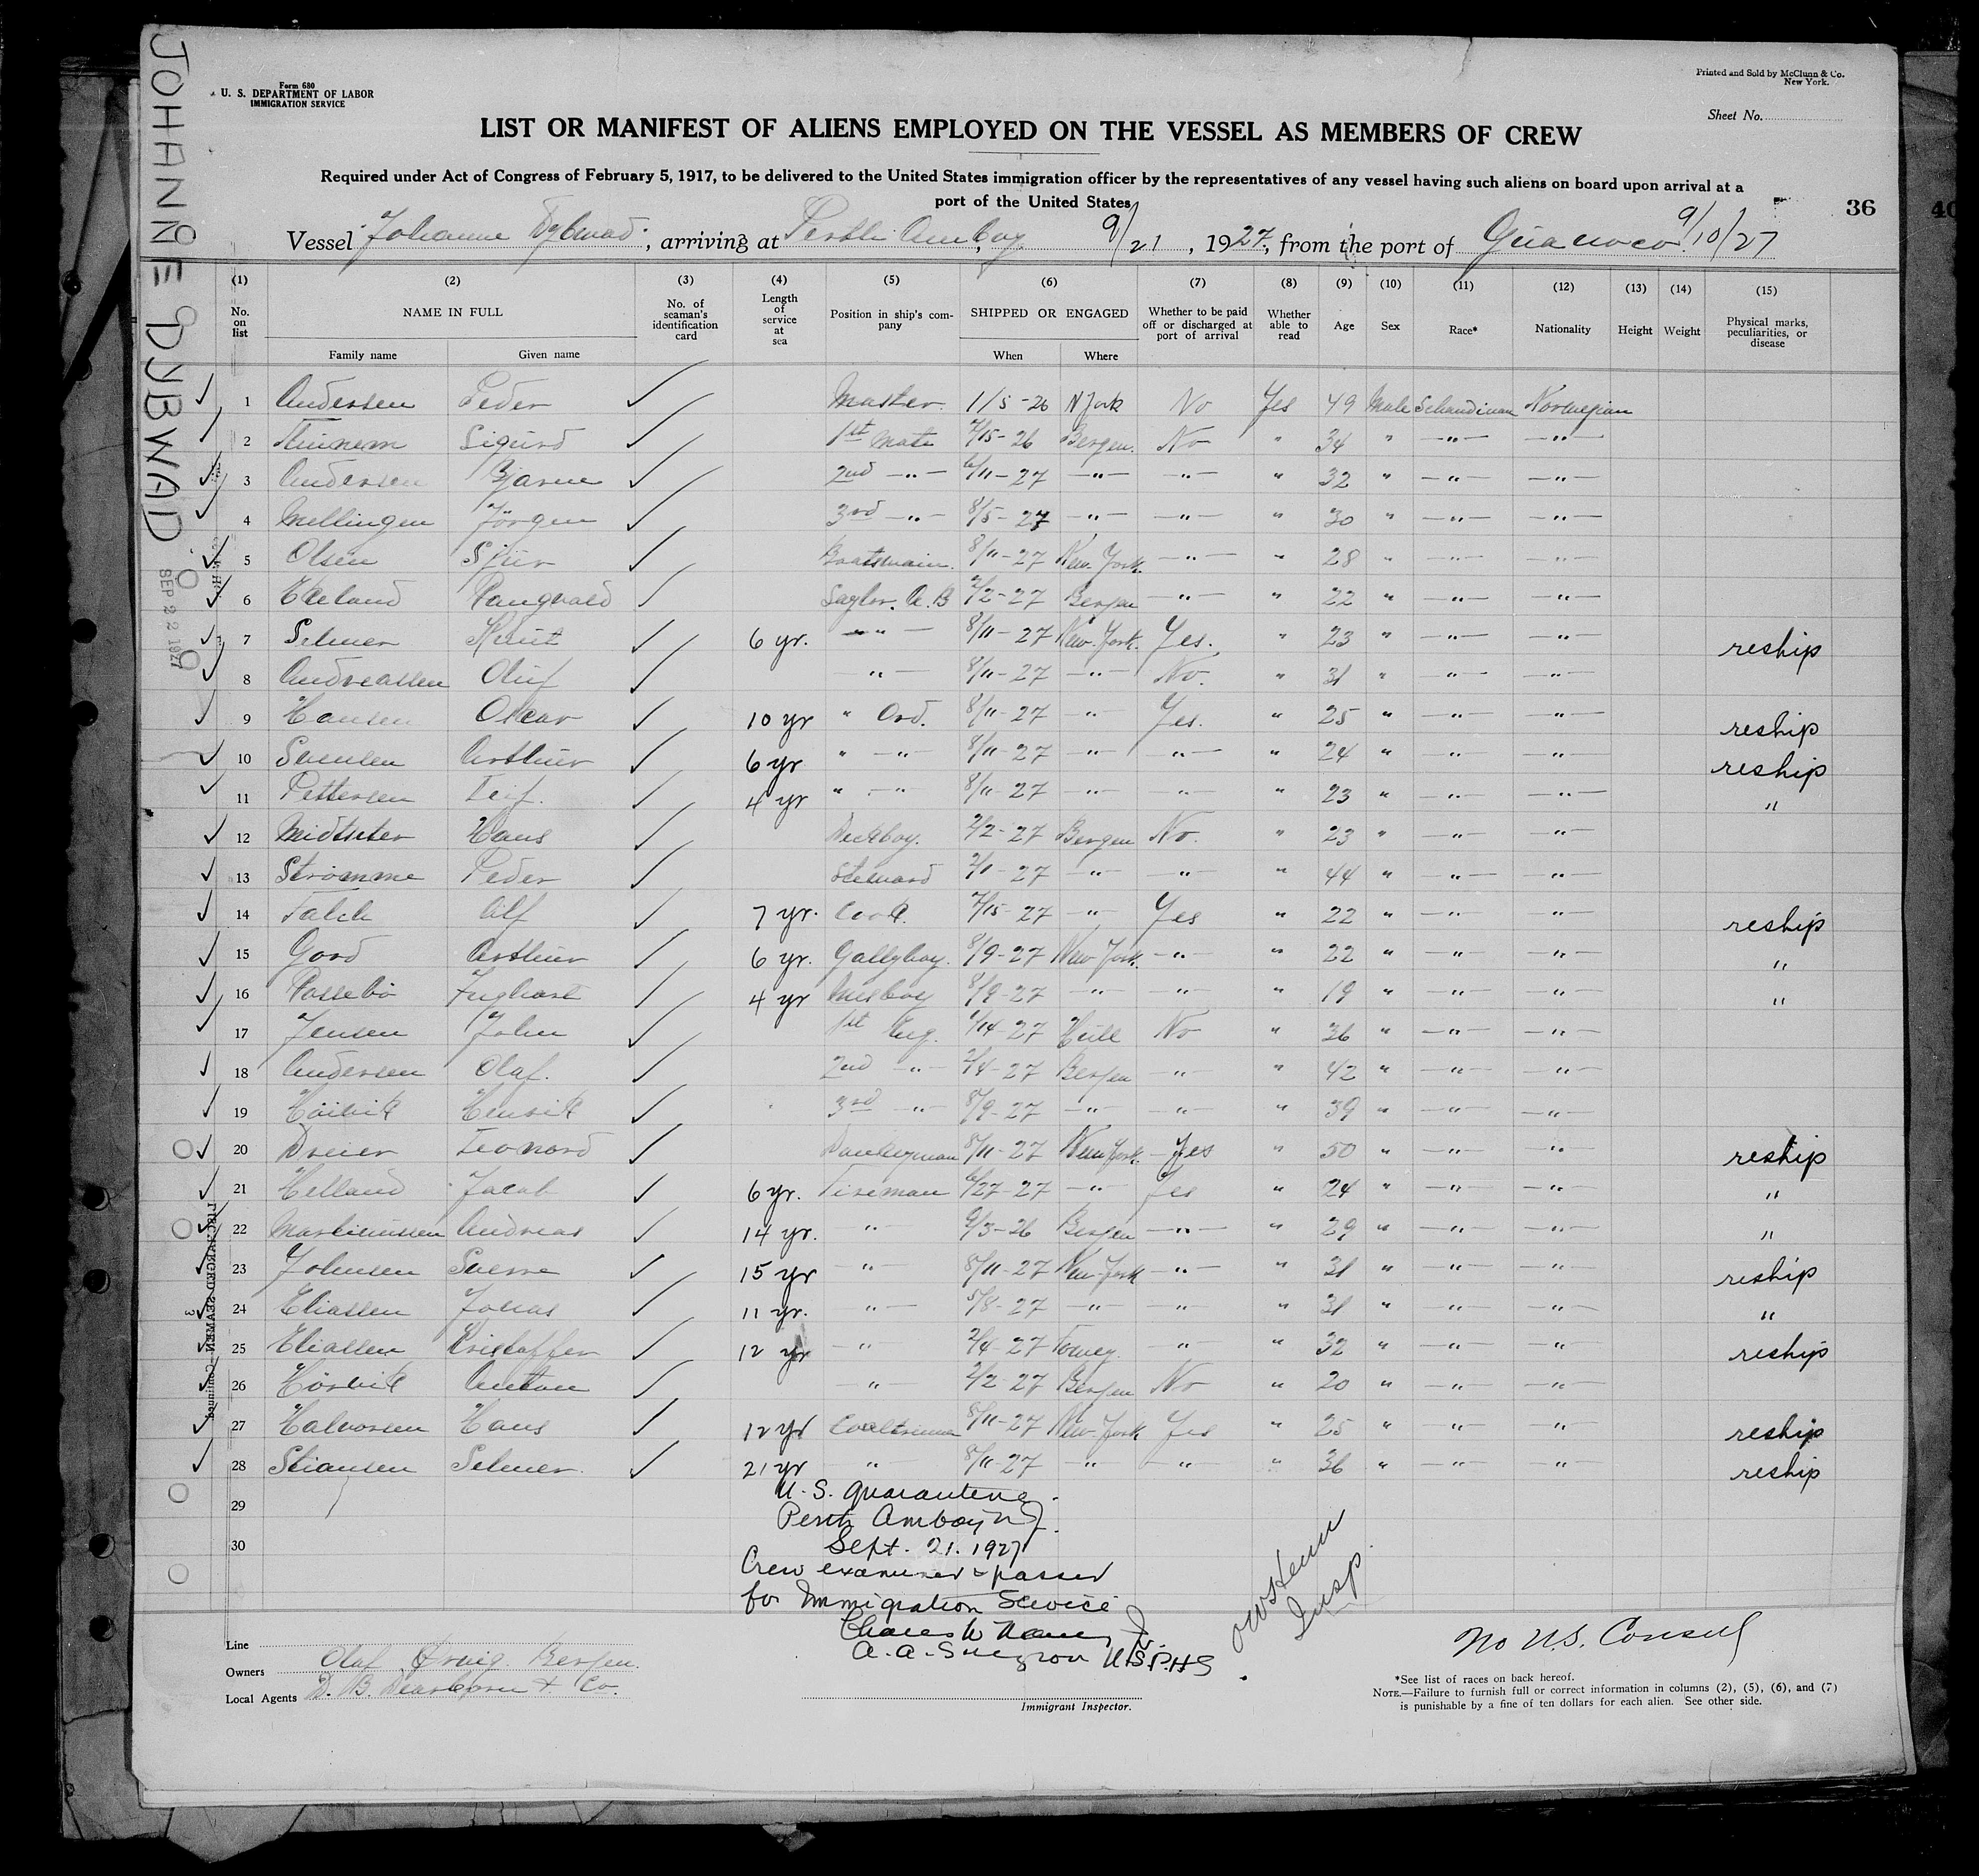 JOHANNE DYBWAD
SEP 22 1927
Form 680
U. S. DEPARTMENT OF LABOR
IMMIGRATION SERVICE
Printed and Sold by McClunn & Co.
New York.
Sheet No.
LIST OR MANIFEST OF ALIENS EMPLOYED ON THE VESSEL AS MEMBERS OF CREW
Required under Act of Congress of February 5, 1917, to be delivered to the United States immigration officer by the representatives of any vessel having such aliens on board upon arrival at a
port of the United States
36
40
Vessel Johanne Dybwad, arriving at Perth Amboy, 9/21, 1927, from the port of Guanoco 9/10/27
(1) (2) (3) (4) (5) (6) (7) (8) (9) (10) (11) (12) (13) (14) (15)
No. on list NAME IN FULL No. of seaman's identification card Length of service at sea Position in ship's company SHIPPED OR ENGAGED Whether to be paid off or discharged at port of arrival Whether able to read Age Sex Race* Nationality Height Weight Physical marks, peculiarities, or disease
Family name Given name When Where
1 Andersen Peder Master 1/5-26 N York No Yes 49 Male Scandinav Norwegian
2 Sigurd 1st Mate 7/15-26 Bergen No " 34 " —"— —"—
3 Andersen Bjarne 2nd —"— 6/11-27 —"— —"— " 32 " —"— —"—
4 Mellingen Jörgen 3rd —"— 8/5-27 —"— —"— " 30 " —"— —"—
5 Olsen Boatswain 8/11-27 New York —"— " 28 " —"— —"—
6 Ekeland Rangvald Saylor. A.B 2/2-27 Bergen —"— " 22 " —"— —"—
7 Selmer Knut 6 yr. —"— 8/11-27 New York. Yes. " 23 " —"— —"— reship
8 Andreassen Oluf "— 8/11-27 —"— No. " 31 " —"— —"—
9 Hansen Oscar 10 yr " Ord. 8/11-27 —"— Yes. " 25 " —"— —"— reship
10 Svensen Arthur 6 yr " —"— 8/11-27 —"— —"— " 24 " —"— —"— reship
11 Pettersen Leif. 4 yr " —"— 8/11-27 —"— —"— " 23 " —"— —"— "
12 Midtseter Hans Deckboy. 2/2-27 Bergen No. " 23 " —"— —"—
13 Strömme Peder Steward 2/1-27 —"— —"— " 44 " —"— —"—
14 Falch Alf 7 yr. Cook. 7/15-27 —"— Yes " 22 " —"— —"— reship
15 Gord Arthur 6 yr. Gallyboy. 8/9-27 New York. —"— " 22 " —"— —"— "
16 4 yr Mesboy 8/9-27 —"— —"— " 19 " —"— —"— "
17 Jensen John 1st Eng. 1/14-27 Hull No " 36 " —"— —"—
18 Andersen Olaf. 2nd —"— 2/4-27 Bergen —"— " 42 " —"— —"—
19 Henrik 3rd —"— 8/9-27 —"— —"— " 39 " —"— —"—
20 Dreier Leonard Donkeyman 8/11-27 New York. Yes " 50 " —"— —"— reship
21 Helland Jacob 6 yr. Fireman 6/27-27 —"— Yes " 24 " —"— —"— "
22 Martinussen Andreas 14 yr. " 9/3-26 Bergen —"— " 29 " —"— —"— "
23 Johnsen Sverre 15 yr " 8/11-27 New York —"— " 31 " —"— —"— reship
24 Eliassen Jonas 11 yr. "— 5/8-27 —"— —"— " 31 " —"— —"— "
25 Eliassen Kristoffer 12 yr " 2/4-27 Fowey. " " 32 " —"— —"— reship
26 Anton —"— 2/2-27 Bergen No " 20 " —"— —"—
27 Halvorsen Hans 12 yr Coaltrimmer 8/11-27 New York Yes " 25 " —"— —"— reship
28 Stiansen Selmer. 21 yr " 8/11-27 —"— —"— " 36 " —"— —"— reship
29
30
DISCHARGED SEAMEN—Continued
U. S. Quarantine.
Perth Amboy N.J.
Sept. 21. 1927
Crew examined & passed
for Immigration Service
Charles W
A. A. Surgeon U.S.P.H.S
Insp.
No U.S. Consul
Line
Owners Olaf Ørvig. Bergen.
Local Agents D. B. Dearborn & Co.
Immigrant Inspector.
*See list of races on back hereof.
NOTE.—Failure to furnish full or correct information in columns (2), (5), (6), and (7)
is punishable by a fine of ten dollars for each alien. See other side.